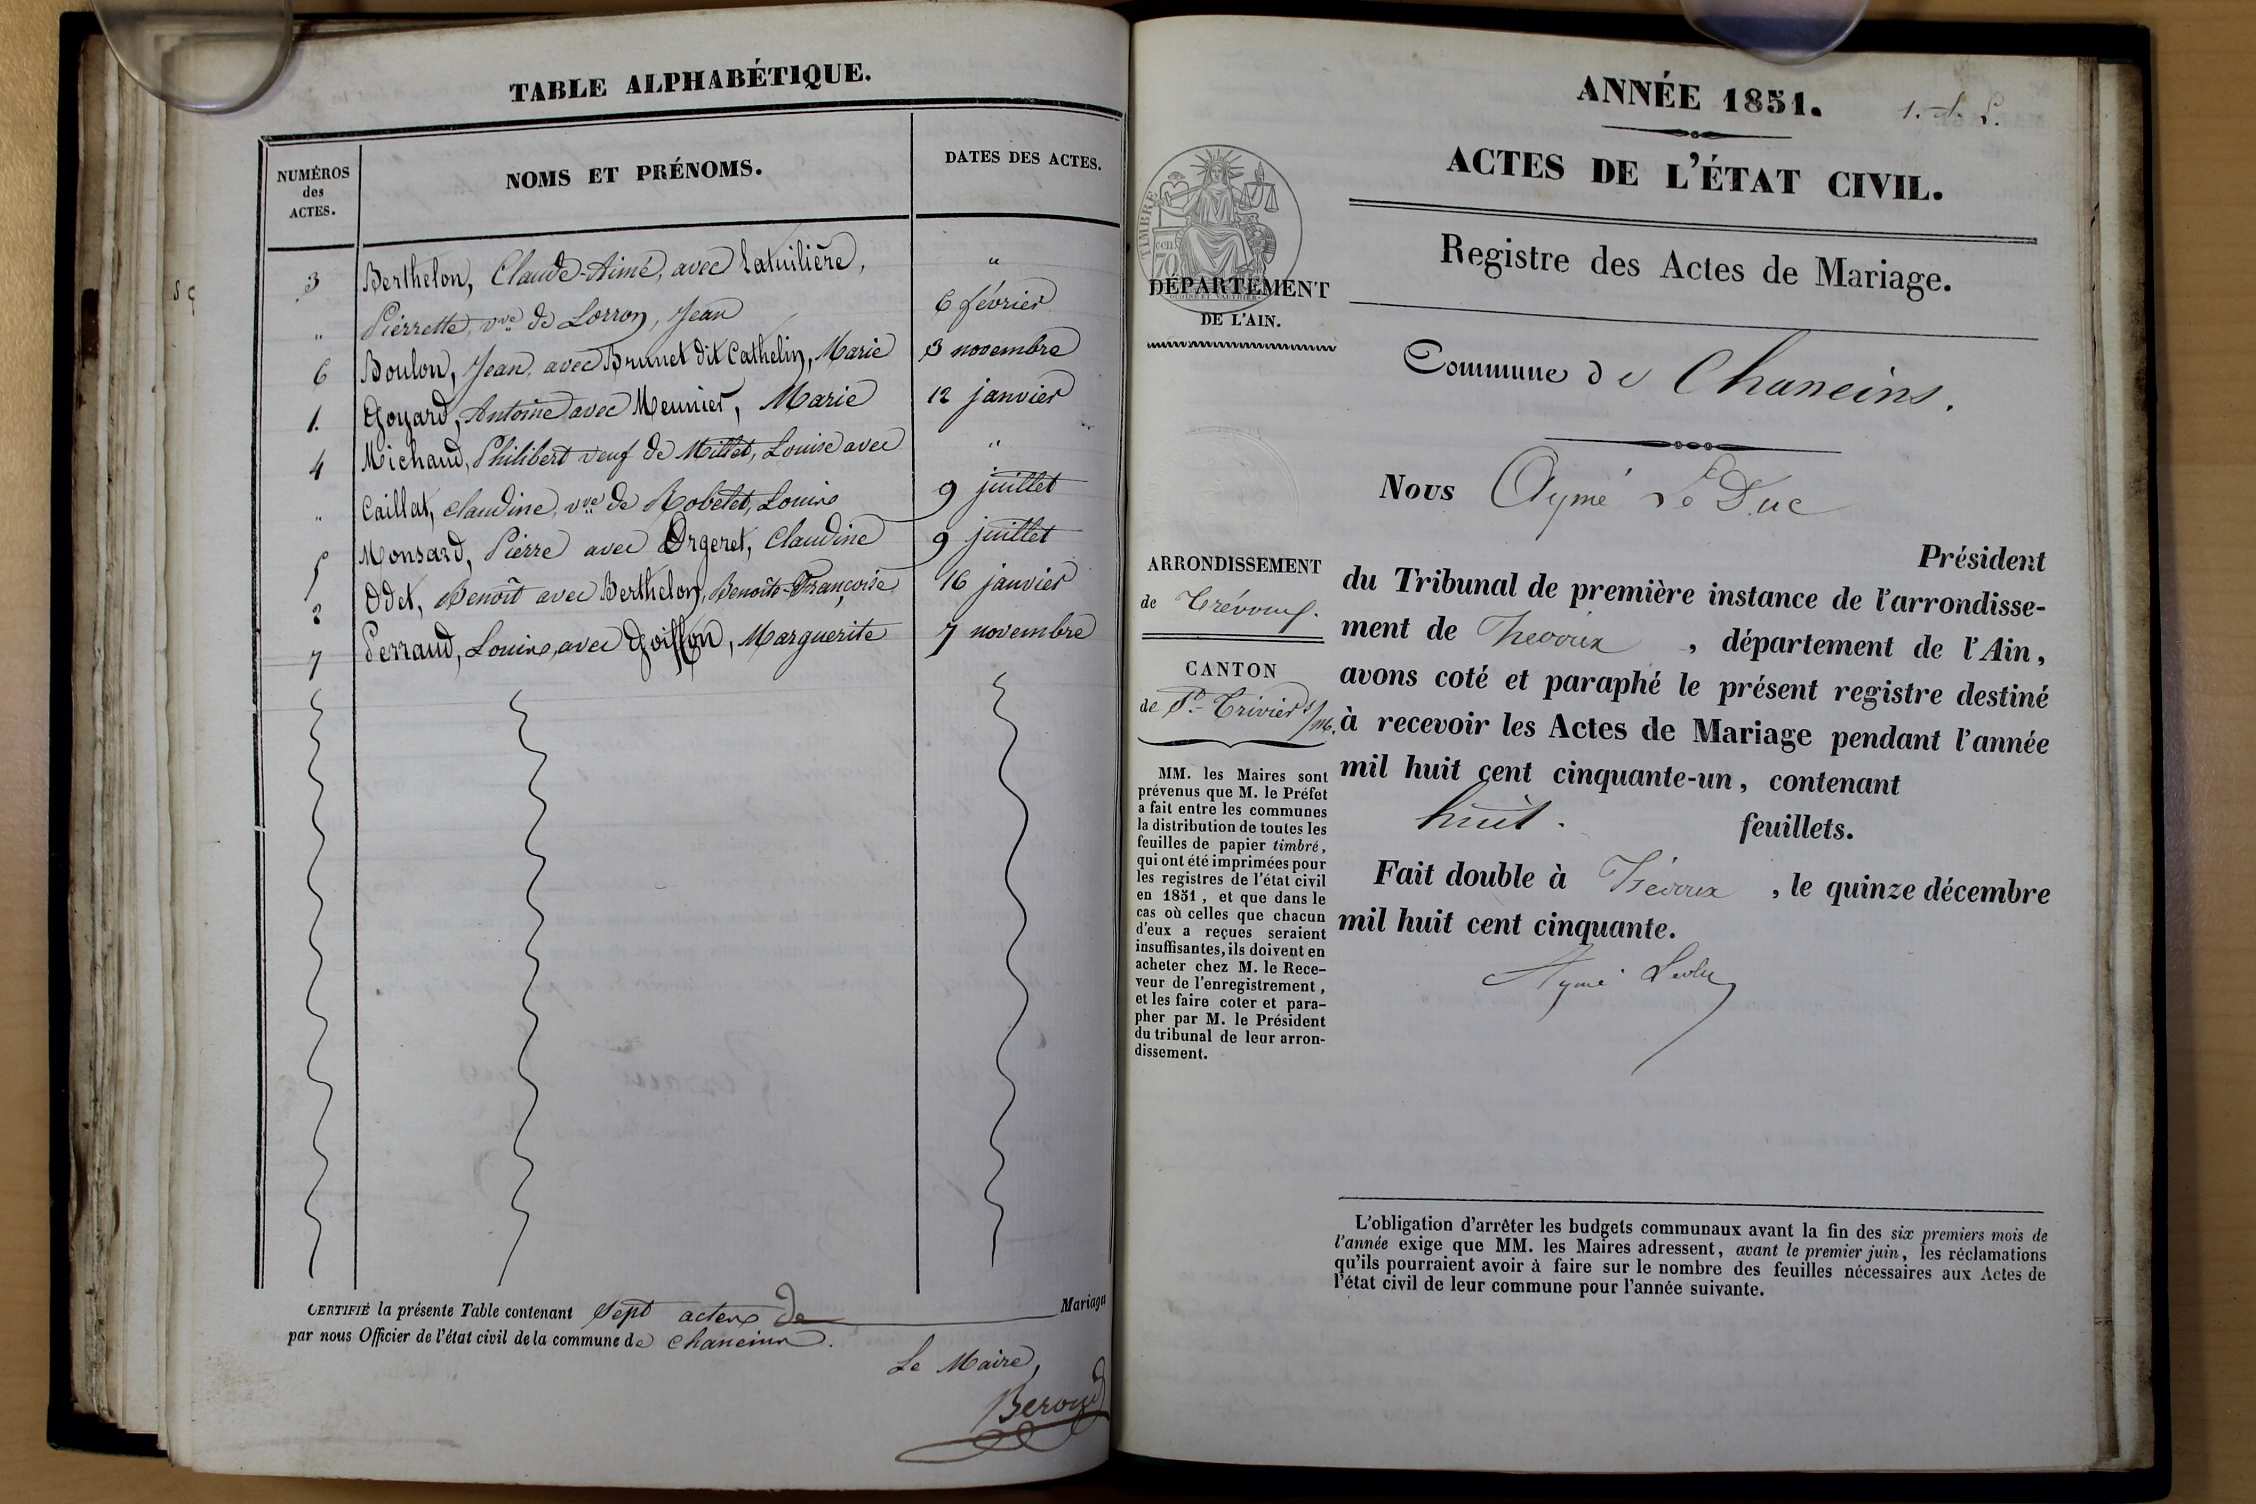 TABLE ALPHABÉTIQUE.
NUMÉROS des ACTES.
NOMS ET PRÉNOMS.
DATES DES ACTES.
3 Berthelon, Claude-Aimé, avec Latuilière, "
" Pierrette, vve de Lorron, Jean 6 février
6 Boulon, Jean, avec Brunet dit Cathelin, Marie 3 novembre
1. Goyard, Antoine avec Meunier, Marie 12 janvier
4 Michaud, Philibert veuf de Millet, Louise avec "
" Caillat, Claudine, vve de Robelet, Louis 9 juillet
5 Monsard, Pierre avec Orgeret, Claudine 9 juillet
2 Odet, Benoît avec Berthelon, Benoîte-Françoise 16 janvier
7 Perraud, Louis, avec Goiffon, Marguerite 7 novembre
CERTIFIÉ la présente Table contenant sept actes de Mariages
par nous Officier de l'état civil de la commune de Chaneins.
Le Maire,
Beroud
ANNÉE 1851.
ACTES DE L'ÉTAT CIVIL.
Registre des Actes de Mariage.
TIMBRE
70 cen
DÉPARTEMENT
DE L'AIN.
Commune de Chaneins.
Nous Aymé Le Duc
Président
du Tribunal de première instance de l'arrondisse-
ment de Trévoux, département de l'Ain,
avons coté et paraphé le présent registre destiné
à recevoir les Actes de Mariage pendant l'année
mil huit cent cinquante-un, contenant
huit. feuillets.
Fait double à Trévoux, le quinze décembre
mil huit cent cinquante.
Aymé Leduc
ARRONDISSEMENT
de Trévoux.
CANTON
de St Trivier s/m.
MM. les Maires sont
prévenus que M. le Préfet
a fait entre les communes
la distribution de toutes les
feuilles de papier timbré,
qui ont été imprimées pour
les registres de l'état civil
en 1851, et que dans le
cas où celles que chacun
d'eux a reçues seraient
insuffisantes, ils doivent en
acheter chez M. le Rece-
veur de l'enregistrement,
et les faire coter et para-
pher par M. le Président
du tribunal de leur arron-
dissement.
L'obligation d'arrêter les budgets communaux avant la fin des six premiers mois de
l'année exige que MM. les Maires adressent, avant le premier juin, les réclamations
qu'ils pourraient avoir à faire sur le nombre des feuilles nécessaires aux Actes de
l'état civil de leur commune pour l'année suivante.